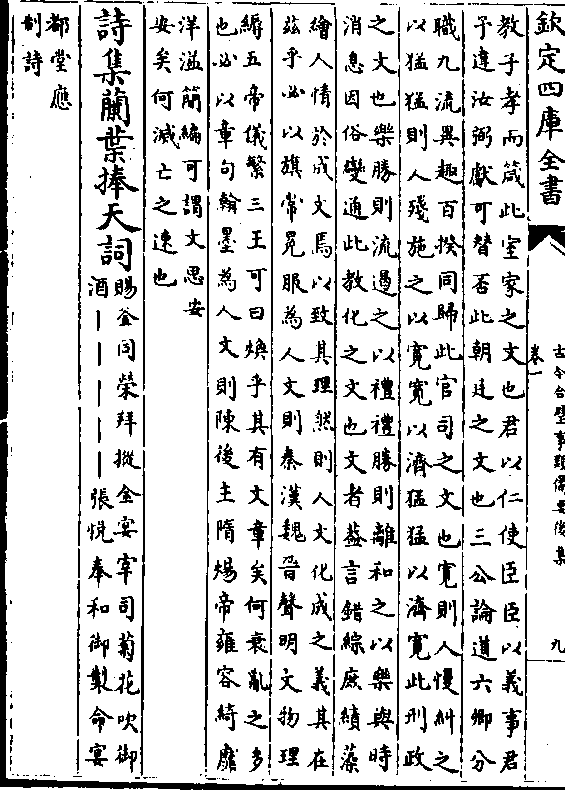 欽定四庫全書
古今合璧事類備要後集
卷一
九
教子孝而箴此室家之文也君以仁使臣臣以義事君
予違汝弼獻可替否此朝廷之文也三公論道六卿分
職九流異趣百揆同歸此官司之文也寛則人慢糾之
以猛猛則人殘施之以寛寛以濟猛猛以濟寛此刑政
之文也樂勝則流遏之以禮禮勝則離和之以樂與時
消息因俗變通此教化之文也文者葢言錯綜庶績藻
繪人情於成文焉以致其理然則人文化成之義其在
兹乎必以旗常冕服為人文則秦漢魏晉聲明文物理
縟五帝儀繁三王可曰煥乎其有文章矣何衰亂之多
也必以章句翰墨為人文則陳後主隋煬帝雍容綺靡
洋溢簡編可謂文思安
安矣何滅亡之速也
詩集蘭葉捧天詞
賜釡同榮拜摐金宴宰司菊花吹御
酒｜｜｜｜｜張悦奉和御製命宴
都堂應
制詩